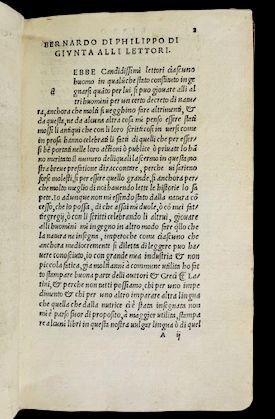 2
BERNARDO DI PHILIPPO DI
GIVNTA ALLI LETTORI.
EBBE Candidissimi lettori ciascuno
a huomo in qualũche stato constituto inge
gnarsi quãto per lui si puo giouare alli al
tri huomini per un certo decreto di natu
ra, anchora che molti sueghino fare altrimenti, &
da questa, ne da alcuna altra cosa mi penso essere stati
mossi li antiqui che con li loro scritti cosi in uersi come
in prosa hanno celebrati li fatti di quelli che per esser
si bẽ portati nelle loro actioni o publice o priuate lo hã
no meritato il numero delli quali lasceremo in questa no
stra breue prefatione di raccontare, perche ui sariano
forse molesti, si per essere quello grande, si anchora per
che molto meglio di noi hauendo lette le historie lo sa
pete. io adunque non mi essendo stato dalla natura cõ
cesso, che io possa, di che assai mi duole, ò cõ mei fat
ti egregij, ò con li scritti celebrando li altrui, giouare
alli huomini mi ingegno in altro modo fare q̃llo che
la natura ne insegna, impero che come da ciascuno che
anchora mediocremente si diletta di leggere puo ha
uere conosciuto, io con grande mia industria & non
piccola fatica, gia molti anni à commune utilita ho fat
to stampare buona parte delli auttori & Greci & La
tini, & perche non tutti possiamo, chi per uno impe
dimento & chi per uno altro imparare altra lingua
che quella che dalla nutrice ci è stata insegnata non
mi è parso fuor di proposito, à maggior utilita, stampa
re alcuni libri in questa nostra uulgar lingua ò di quel
A ij